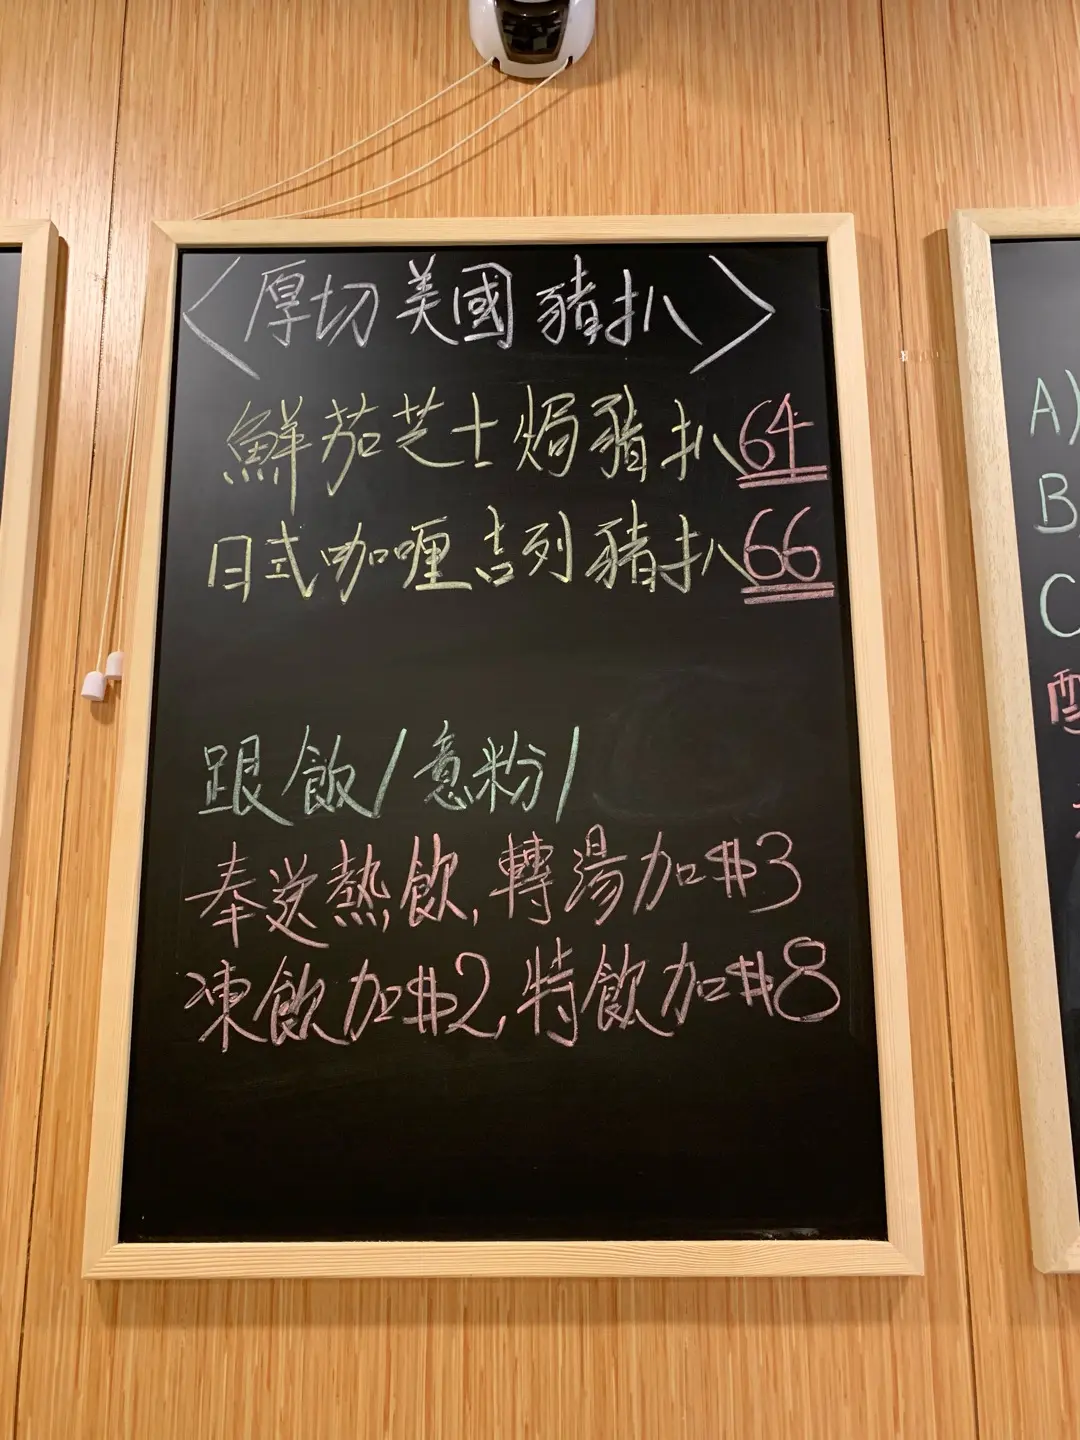 〈厚切美國豬扒〉
鮮茄芝士焗豬扒64
日式咖喱吉列豬扒66
跟飯/意粉/
奉送熱飲,轉湯加$3
凍飲加$2,特飲加$8
A)
B
C